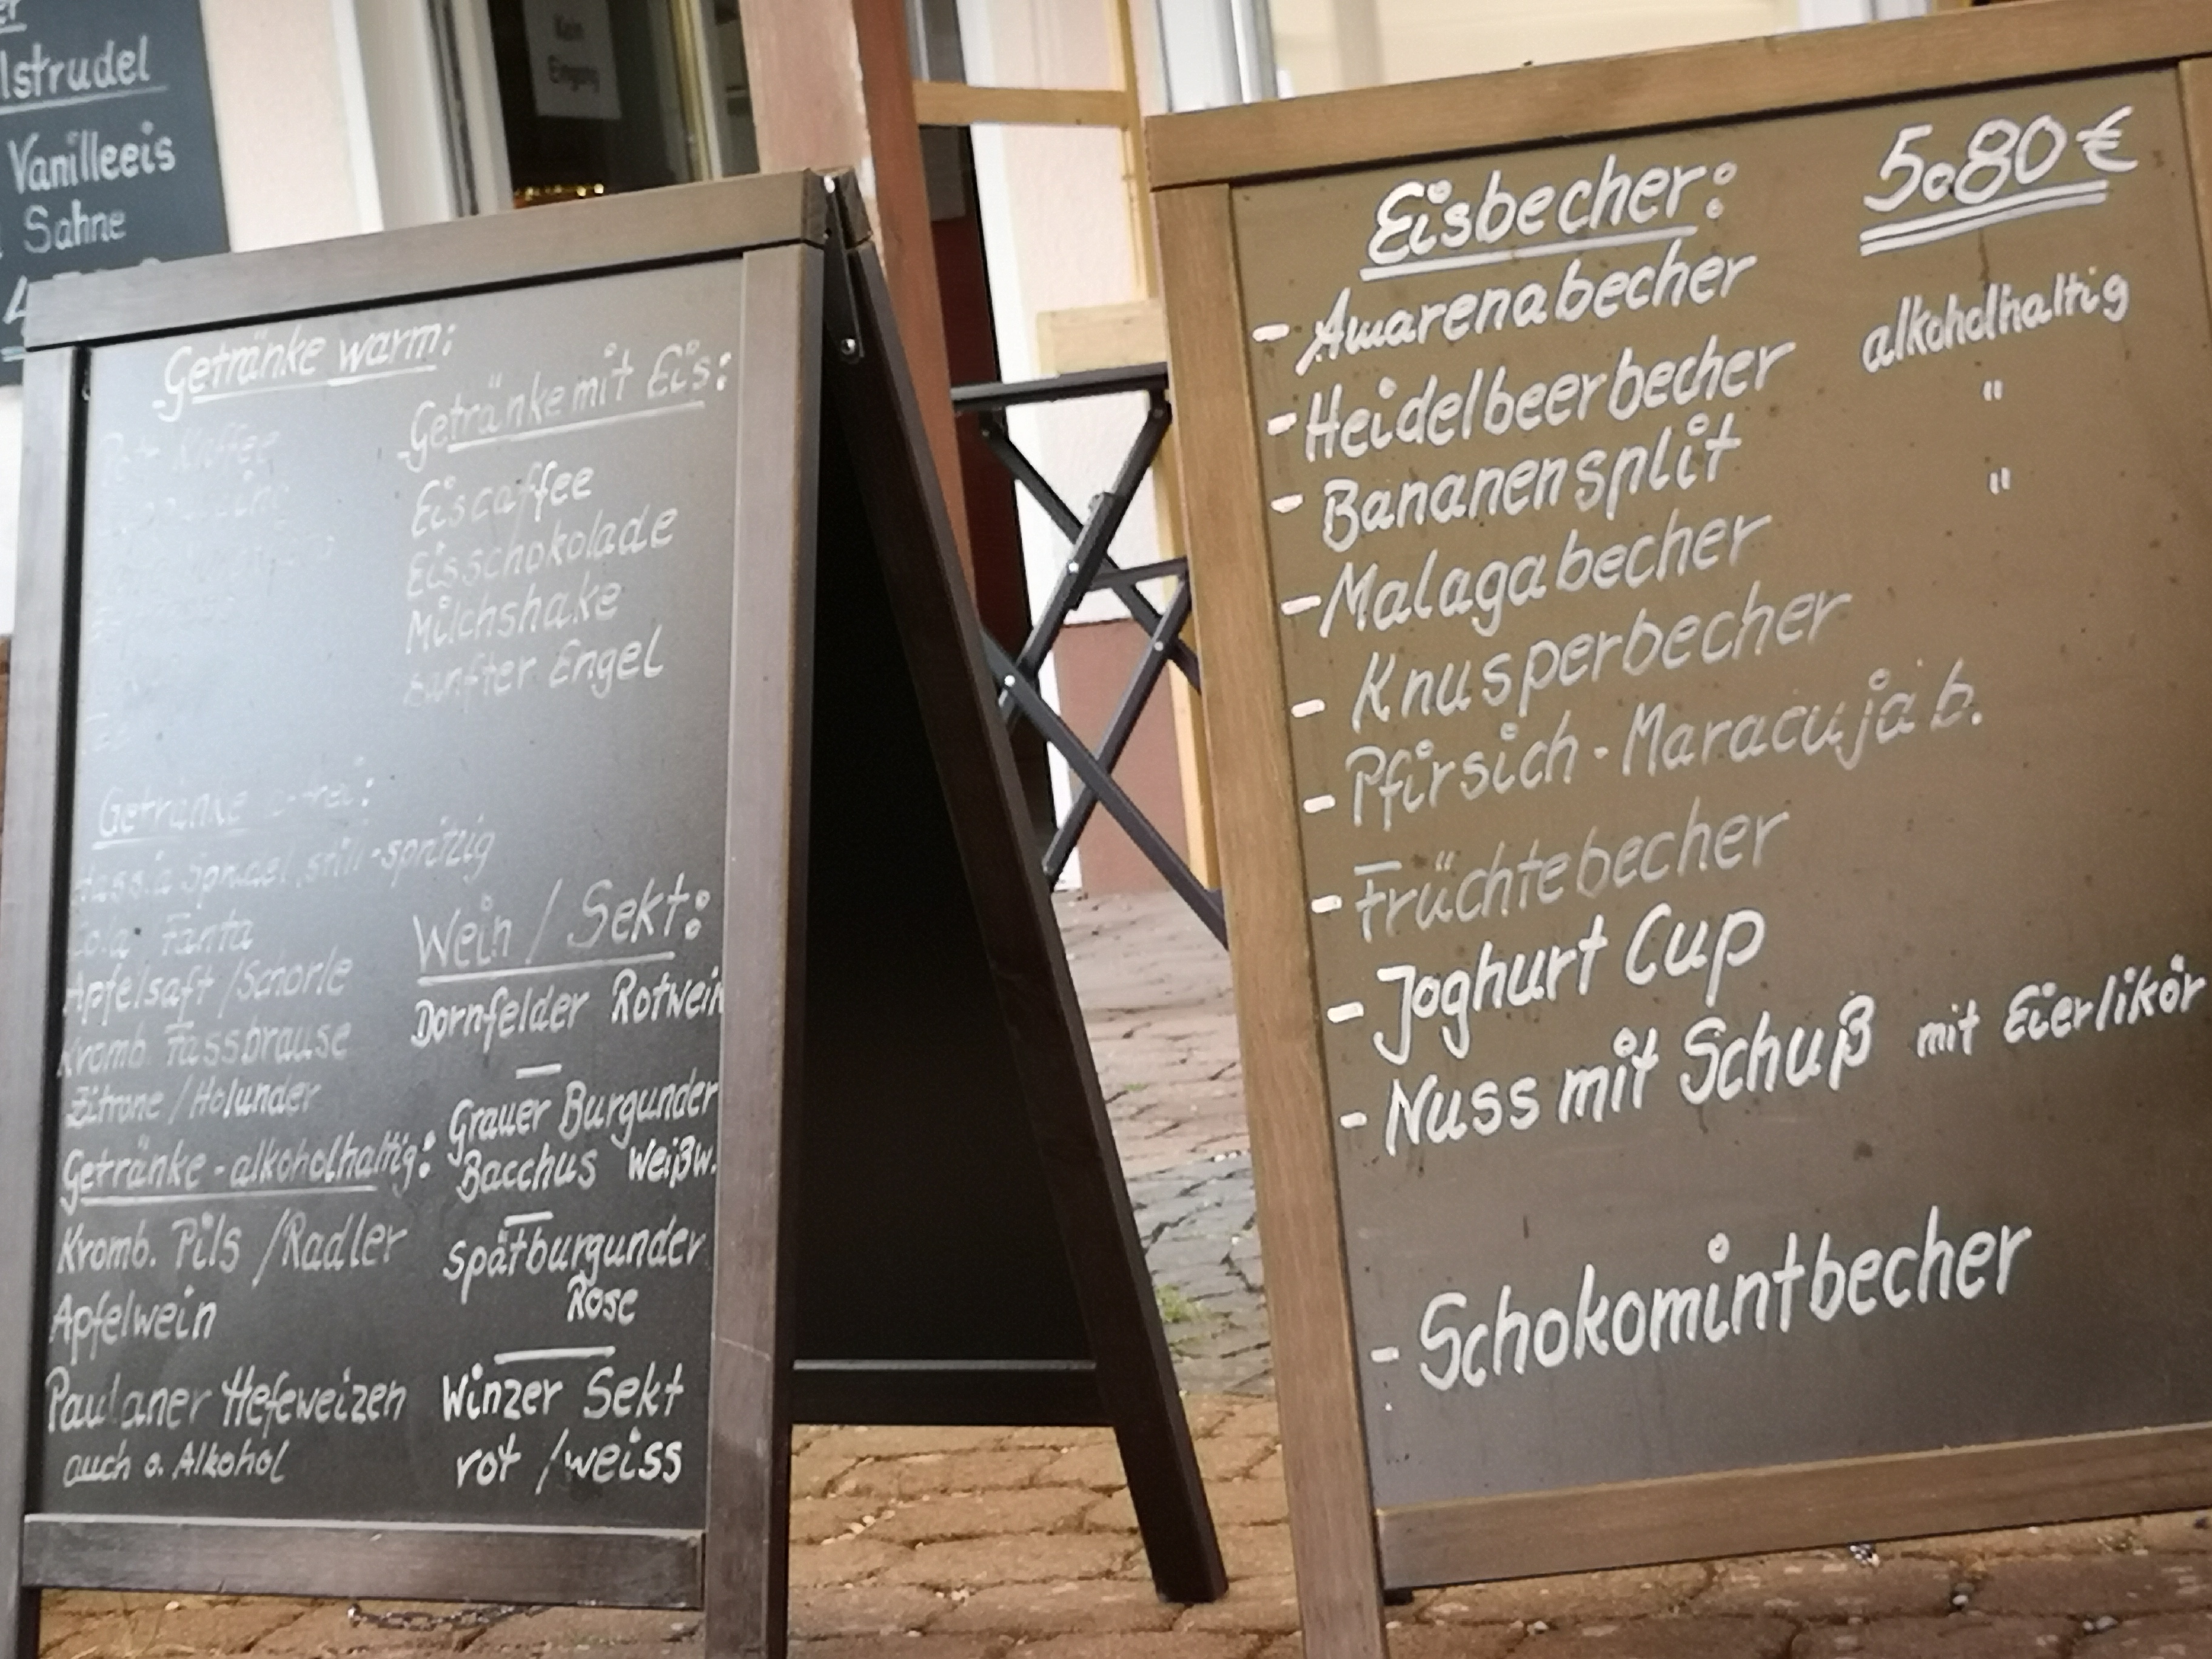 lstrudel
Vanilleeis
Sahne
Kein
Eingang
Getränke warm:
Kaffee
Getränke mit Eis:
Eiscaffee
Eisschokolade
Milchshake
sanfter Engel
Getränke
still-spritzig
Cola Fanta
Apfelsaft /Schorle
Kromb. Fassbrause
Zitrone /Holunder
Getränke-alkoholhaltig:
Kromb. Pils /Radler
Apfelwein
Paulaner Hefeweizen
auch o. Alkohol
Wein / Sekt:
Dornfelder Rotwein
Grauer Burgunder
Bacchus Weißw.
Spätburgunder
Rose
Winzer Sekt
rot /weiss
Eisbecher: 5.80 €
- Amarenabecher alkoholhaltig
- Heidelbeerbecher "
- Bananensplit
- Malagabecher "
- Knusperbecher
- Pfirsich-Maracuja b.
- Früchtebecher
- Joghurt Cup
- Nuss mit Schuß mit Eierlikör
- Schokomintbecher